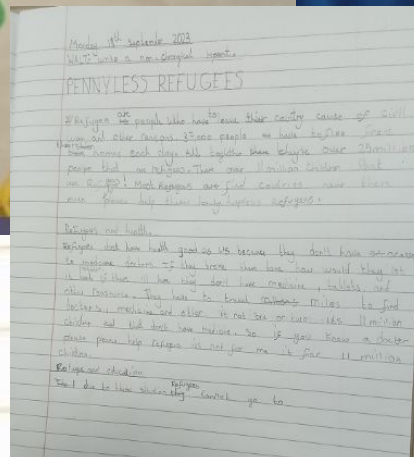 Monday 18th September 2023
WALT: write a non-chronological report.
PENNYLESS REFUGEES
Refugees are people who have to leave their country cause of civil
war and other reasons. 37,000 people have to flee there
homes each day. All together there over 35 million
people that are refugees. There over 11 million children that
are refugees! Most Refugees are find countries near them
please help these lonely helpless refugees.
Refugees and health.
Refugees dont have health good as us because they don't have access
to medicine doctors if they broke there bone how would they let
it heal if there ill how they don't have medicine, tablets and
other resources. They have to travel miles to find
doctors, medicine and other its not one or two its 11 million
children and that dont have medicine. So if you know a doctor
please please help refugees its not for me it for 11 million
children.
Refuge and education
due to there situation Refugees cannot go to